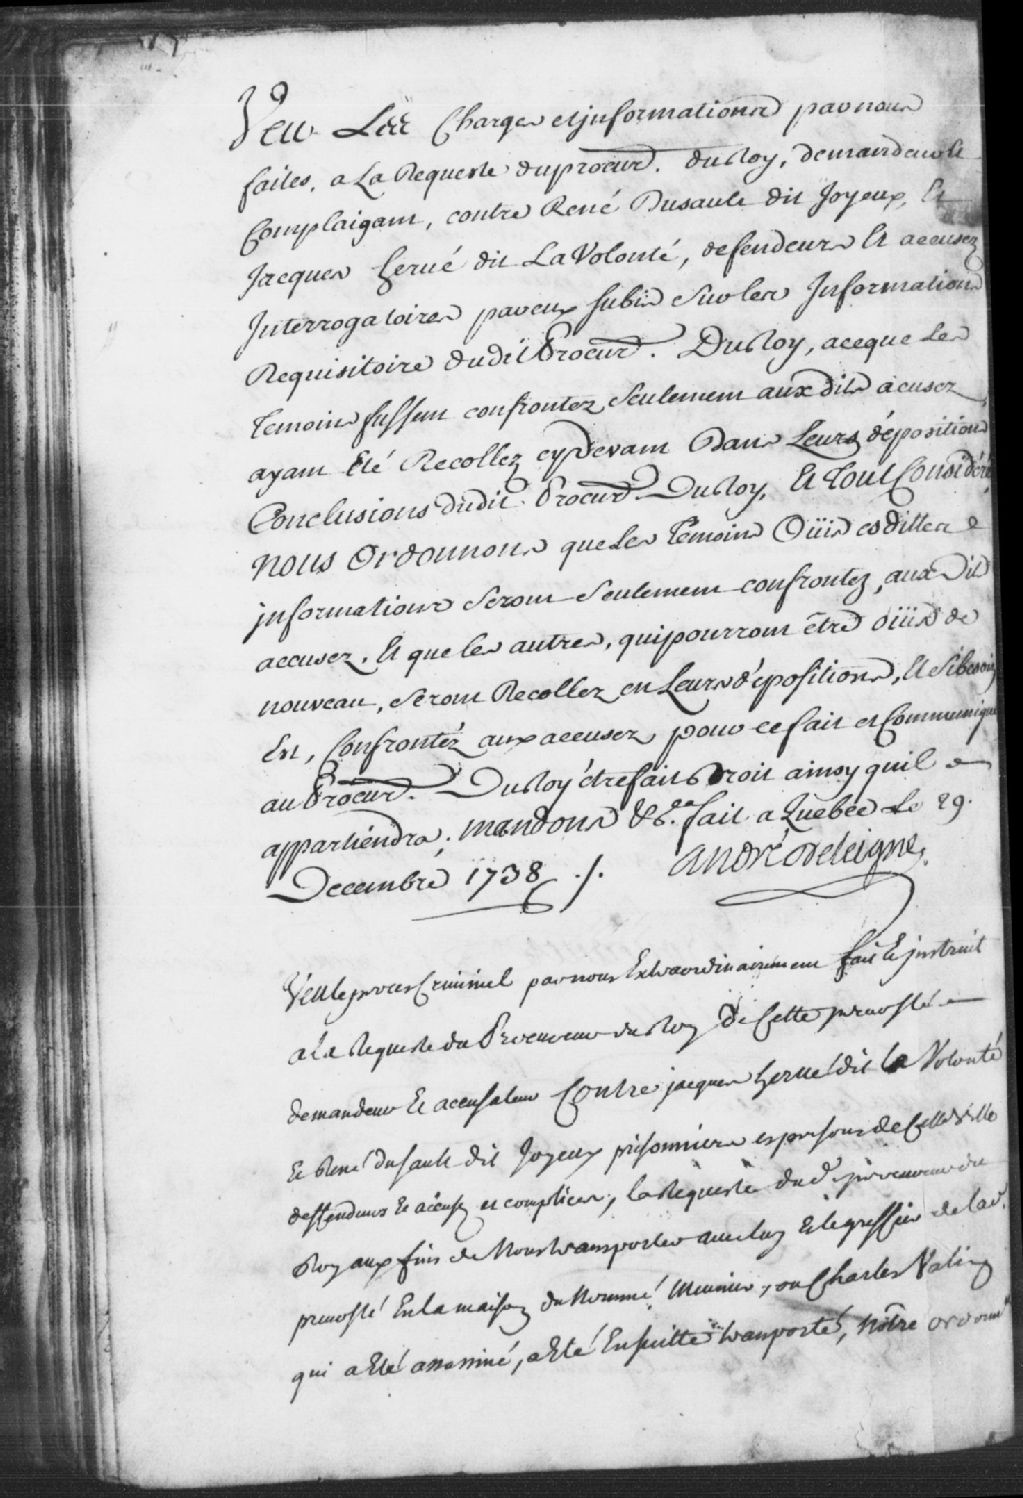 Veu Les Charges et jnformations par nous
faites, a La Requeste du procur. du Roy, demandeur et
Complaignant, contre René Dusault dit Joyeux, Et
Jacques hervé dit La Volonté, defendeurs Et accusez
Interrogatoires par eux subis sur les Informations
Requisitoire dudit Procur. Du Roy, a ce que Les
temoins fussent confrontez seulement aux dits accusez
ayant Eté Recollez cy devant Dans Leurs dépositions
Conclusions dudit Procur. Du Roy, Et Tout Consideré
nous Ordonnons que Les Temoins Oüis esdittes
jnformations seront seulement confrontez, aux Dits
accusez, Et que les autres, qui pourront être oüis de
nouveau, seront Recollez en Leurs dépositions, Et si besoin
Est, Confrontéz aux accusez, pour ce fait et Communiqué
au Procur. Du Roy être fait Droit ainsy quil
appartiendra, mandons &c. fait a Quebec Le 29.
Decembre 1738 ./. André Deleigne
Veu le procez Criminel par nous Extraordinairement fait Et jnstruit
a La Requeste du Procureur du Roy De Cette prevosté
demandeur Et accusateur Contre jacques hervé dit la Volonté
Et René dusault dit Joyeux prisonniers es prisons de Cette Ville
deffendeurs Et accusez et complices, la Requeste dud. procureur du
Roy aux fins de Nous transporter avec luy Et le greffier de lad.
prevosté En la maison du Nommé Meunier, ou Charles Valin
qui a Eté assassiné, a Eté Ensuitte transporté, Nôtre ordonn